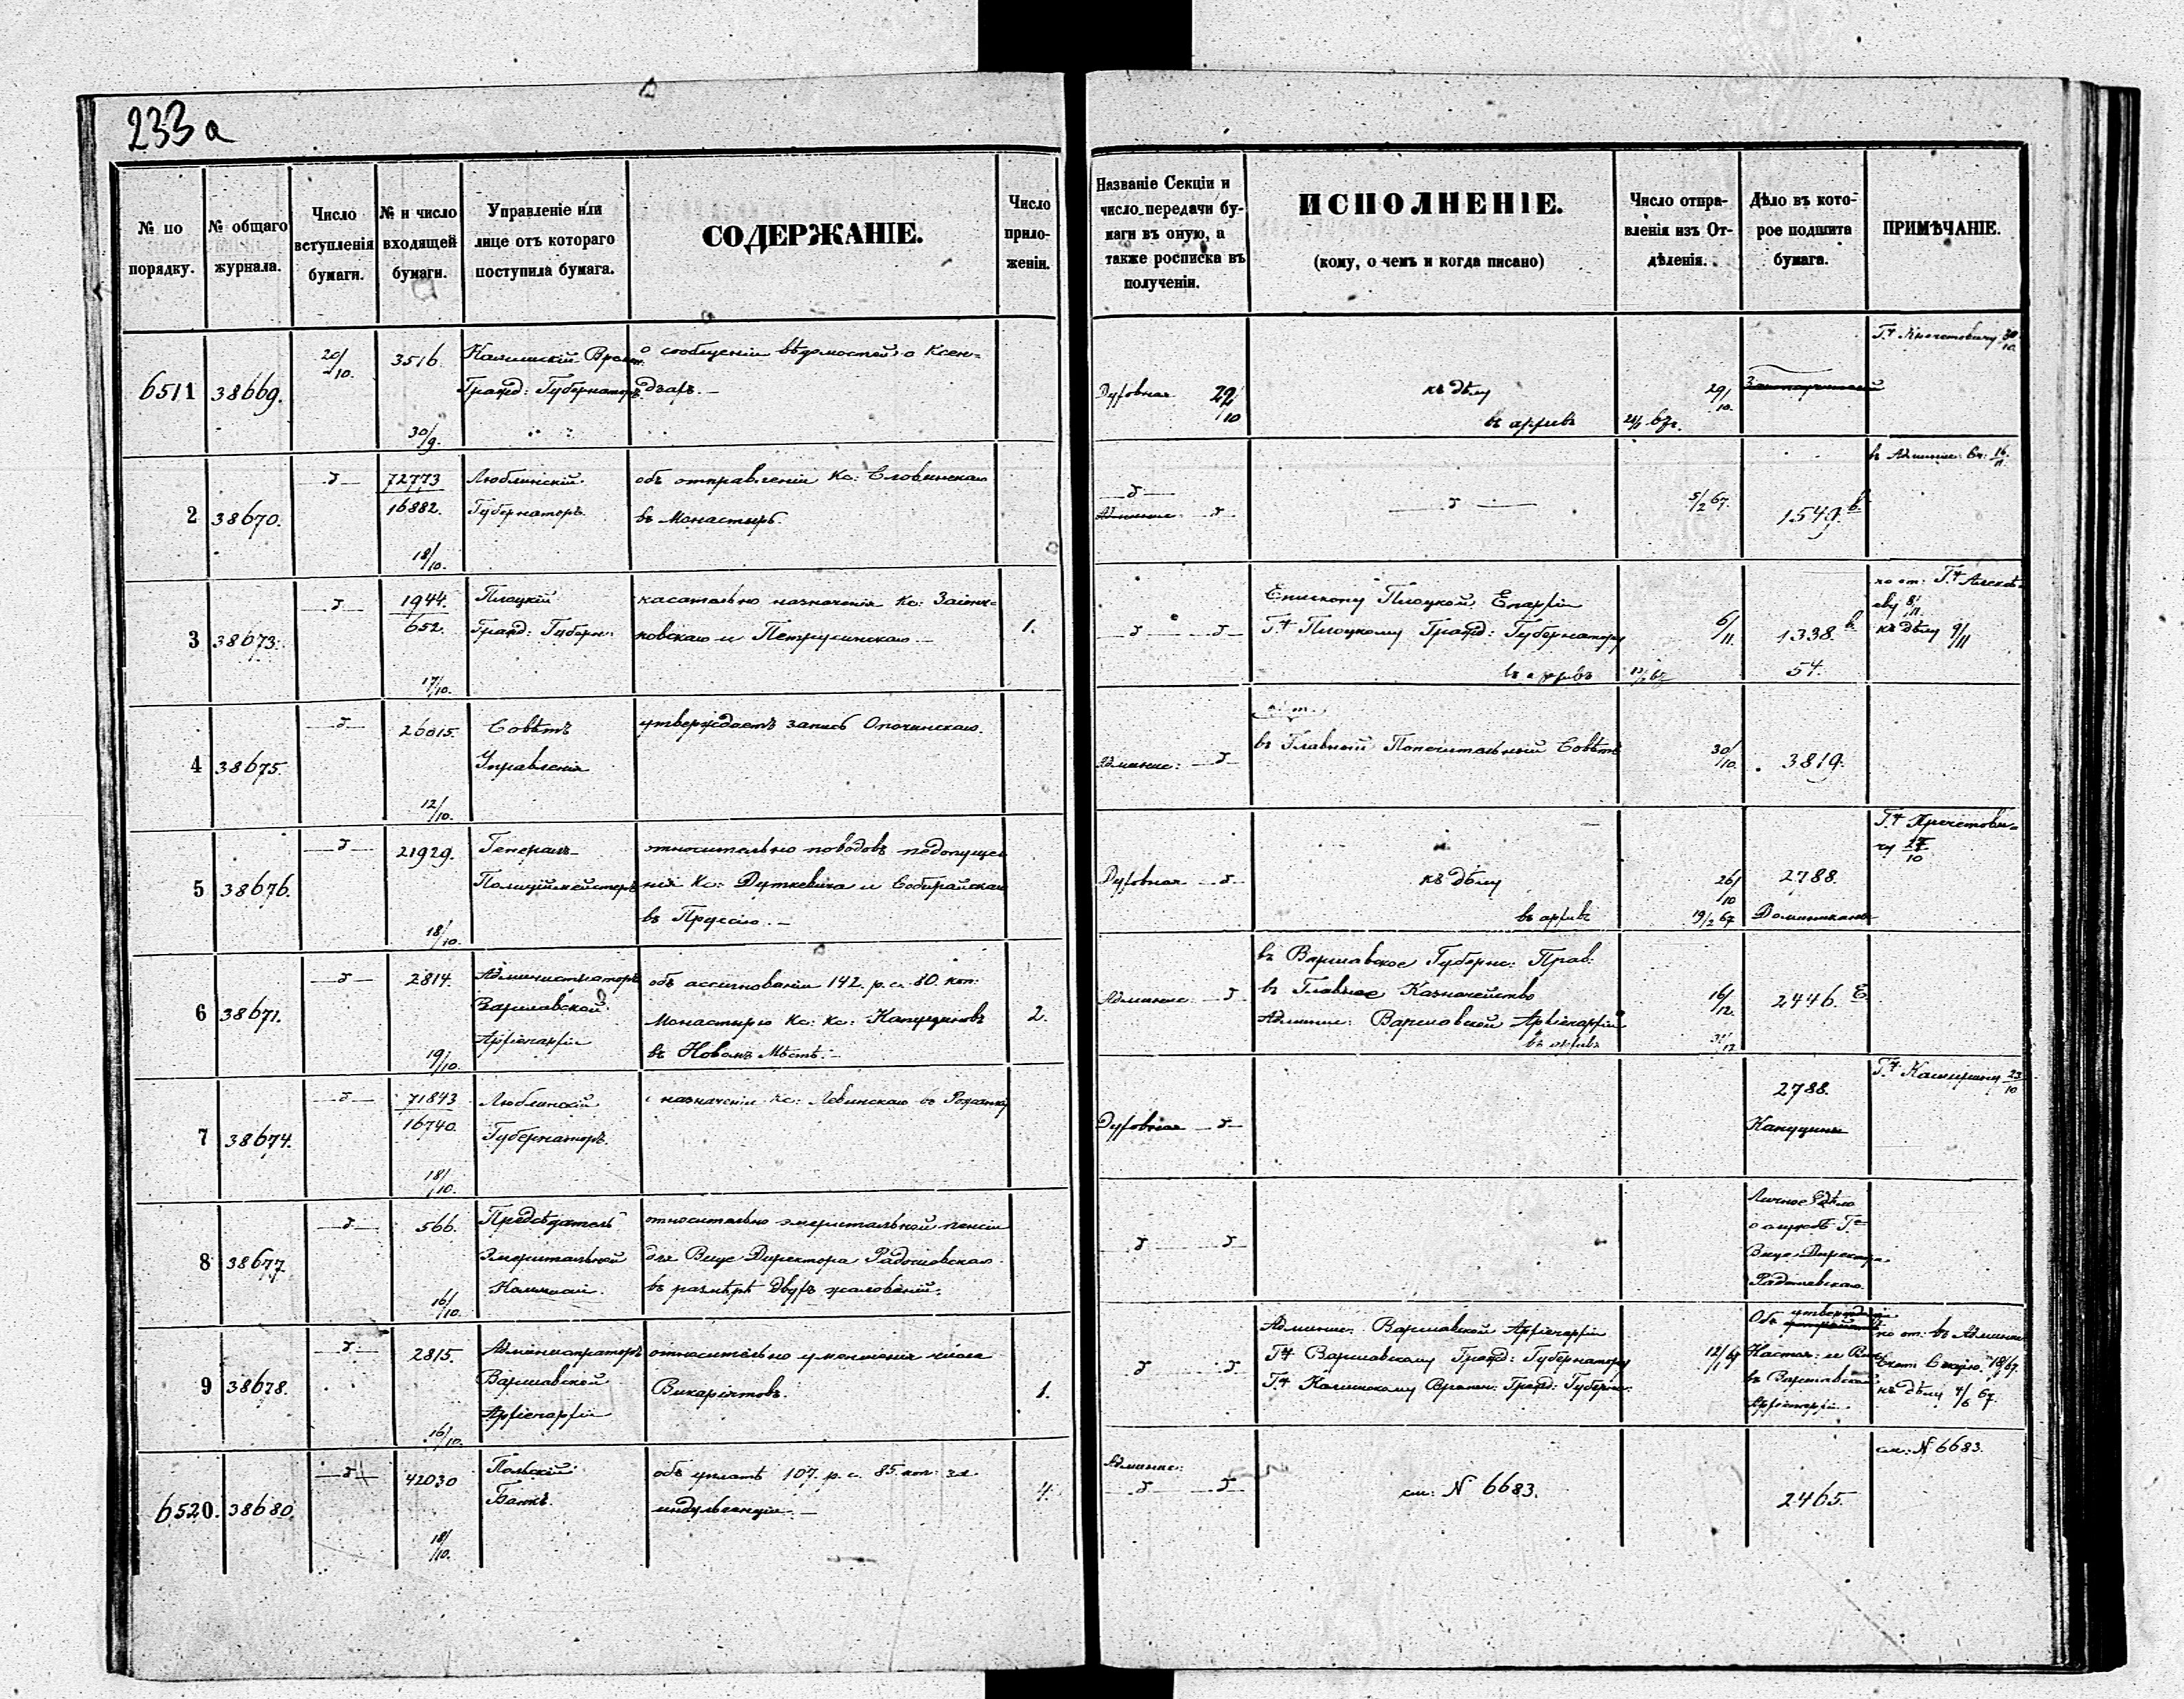 233а
№ по порядку.
№ общаго журнала.
Число вступленія бумаги.
№ и число входящей бумаги.
Управленіе или лице отъ котораго поступила бумага.
СОДЕРЖАНІЕ.
Число приложеніи.
Названіе Секціи и число передачи бумаги въ оную, а также росписка въ полученіи.
ИСПОЛНЕНІЕ.
(кому, о чемъ и когда писано)
Число отправленія изъ Отдѣленія.
Дѣло въ которое подшита бумага.
ПРИМѢЧАНІЕ.
6511 38669. 20/10. 3516 30/9.
Калишскій Времен.
Гражд: Губернаторъ
о сообщеніи вѣдомостей о Ксен-
дзахъ.—
Духовная 22/10
къ дѣлу 29/10.
въ архивъ
Гну 30/10.
2 38670. 72773 16882. 18/10.
Люблинскій
Губернаторъ
объ отправленіи Кс: Словинскаго
въ монастырь.
5/2 67.
1549. в
въ Админис: Ск: 16/11.
3 38673. 1944. 652. 17/10.
Плоцкій
Гражд: Губерн:
касательно назначенія Кс: Заіонч-
ковскаго и Петрусинскаго.—
1.
Епископу Плоцкой Епархіи
Гну Плоцкому Гражд: Губернатору
въ архивъ
6/11.
1338. в
54.
по от: Гну Алексѣ-
еву 8/11.
къ дѣлу 9/11
4 38675. 26015. 12/10.
Совѣтъ
Управленія
утверждаетъ запись Опочинскаго.
Админис:
въ Главный Попечительный Совѣтъ
30/10.
3819.
5 38676. 21929. 18/10.
Генералъ-
Полиціймейстеръ
относительно поводовъ недопуще-
нія Кс: Дуткевича и Собирайскаго
въ Пруссію.—
Духовная
къ дѣлу 26/10
въ архивъ 19/2 67
2788.
Доминиканъ
6 38671. 2814. 19/10.
Администраторъ
Варшавской
Архіепархіи
объ ассигнованіи 142. р. с. 80. коп:
монастырю Кс: Кс: Капуциновъ
въ Новомъ Мѣстѣ.—
2.
Админис:
въ Варшавское Губерн: Прав:
въ Главное Казначейство
Админис: Варшавской Архіепархіи
въ архивъ
16/12.
2446. Е
7 38674. 71843 16740. 18/10.
Люблинскій
Губернаторъ.
о назначеніи Кс: Левинскаго въ Рожанку
Духовная
2788.
Капуцины
23/10
8 38677. 566. 16/10.
Предсѣдатель
Эмеритальной
Коммисіи.
относительно эмеритальной пенсіи
для Вице Директора Радошовскаго
въ размѣрѣ двухъ жалованій.
Личное дѣло
о службѣ Гна
Вице-Директора
Радошевскаго
9 38678. 2815. 16/10.
Администраторъ
Варшавской
Архіепархіи
относительно уменьшенія числа
Викаріятовъ.
1.
Админис. Варшавской Архіепархіи
Гну Варшавскому Гражд: Губернатору
Гну Калишскому Времен: Гражд: Губерна:
Объ
въ Варшавской
Архіепархіи
по от: въ Админис
къ дѣлу 4/6 67.
6520. 38680. 42030 18/10.
Польскій
Банкъ.
объ уплатѣ 107. р. с. 85. коп: за
индульгенціи.—
4.
Админис:
см: N 6683.
2465.
см: N 6683.